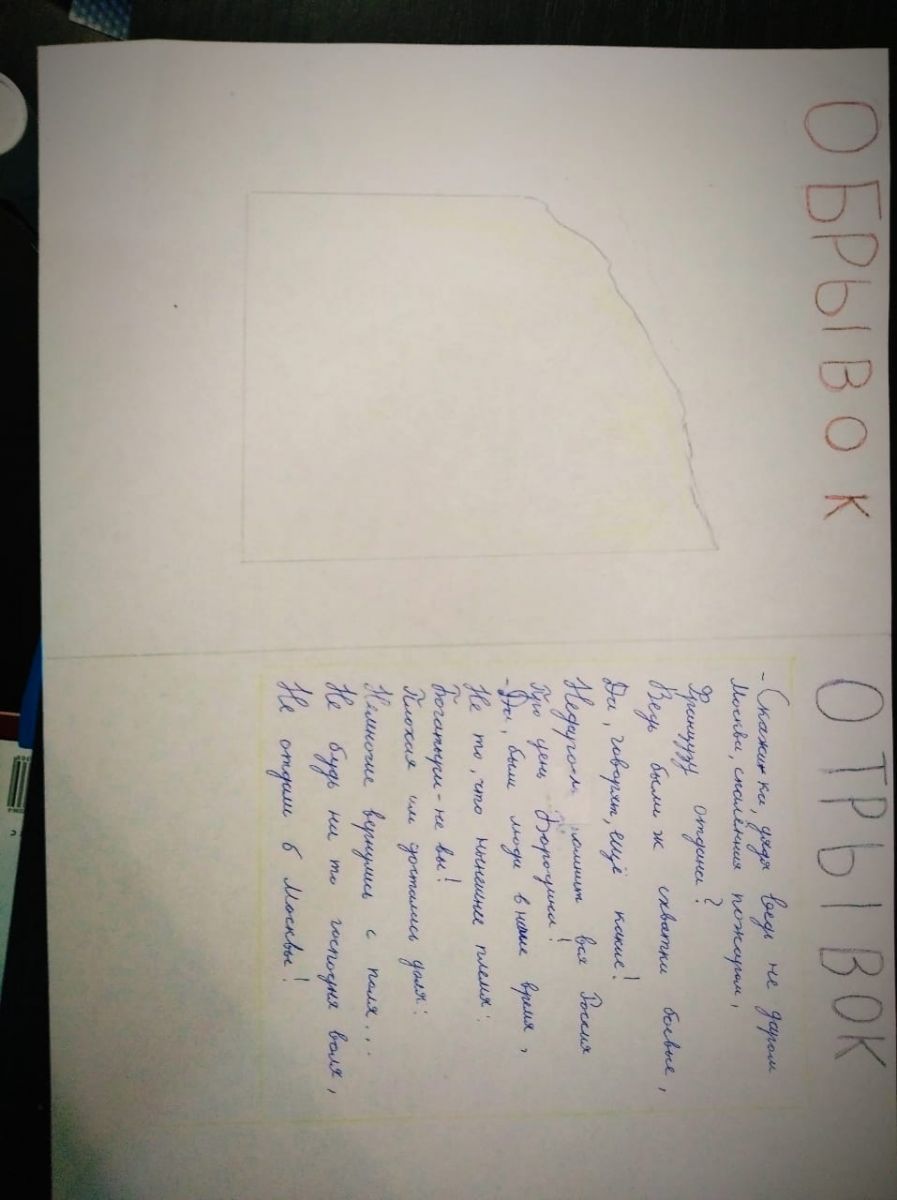 ОБРЫВОК
ОТРЫВОК
- Скажи-ка, дядя ведь не даром
Москва, спалённая пожаром,
Французу отдана?
Ведь были ж схватки боевые,
Да, говорят, ещё какие!
Недаро-м помнит вся Россия
Про день Бородина!
- Да, были люди в наше время,
Не то, что нынешнее племя:
Богатыри - не вы!
Плохая им досталась доля:
Немногие вернулись с поля...
Не будь на то господня воля,
Не отдали б Москвы!